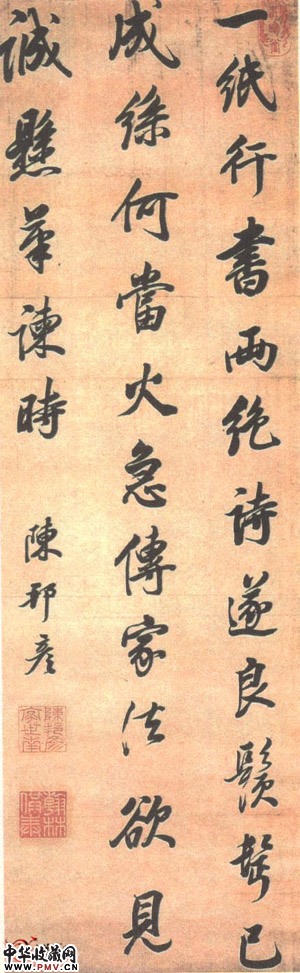 一紙行書兩絕詩遂良鬚鬢已
成絲何當火急傳家法欲見
誠懸筆諫時
陳邦彥
中华收藏网
WWW.PMV.CN